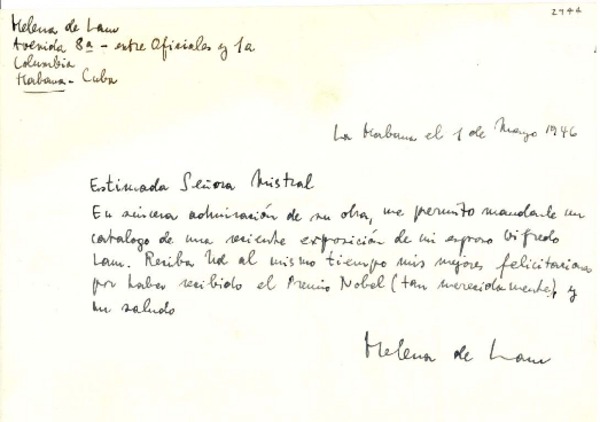 2744
Helena de Lam
Avenida 8a - entre Oficiales y 1a
Columbia
Habana - Cuba
La Habana el 1 de Mayo 1946
Estimada Señora Mistral
En sincera admiración de su obra, me permito mandarle un
catalogo de una reciente exposición de mi esposo Wifredo
Lam. Reciba Ud al mismo tiempo mis mejores felicitaciones
por haber recibido el Premio Nobel (tan merecidamente), y
un saludo
Helena de Lam